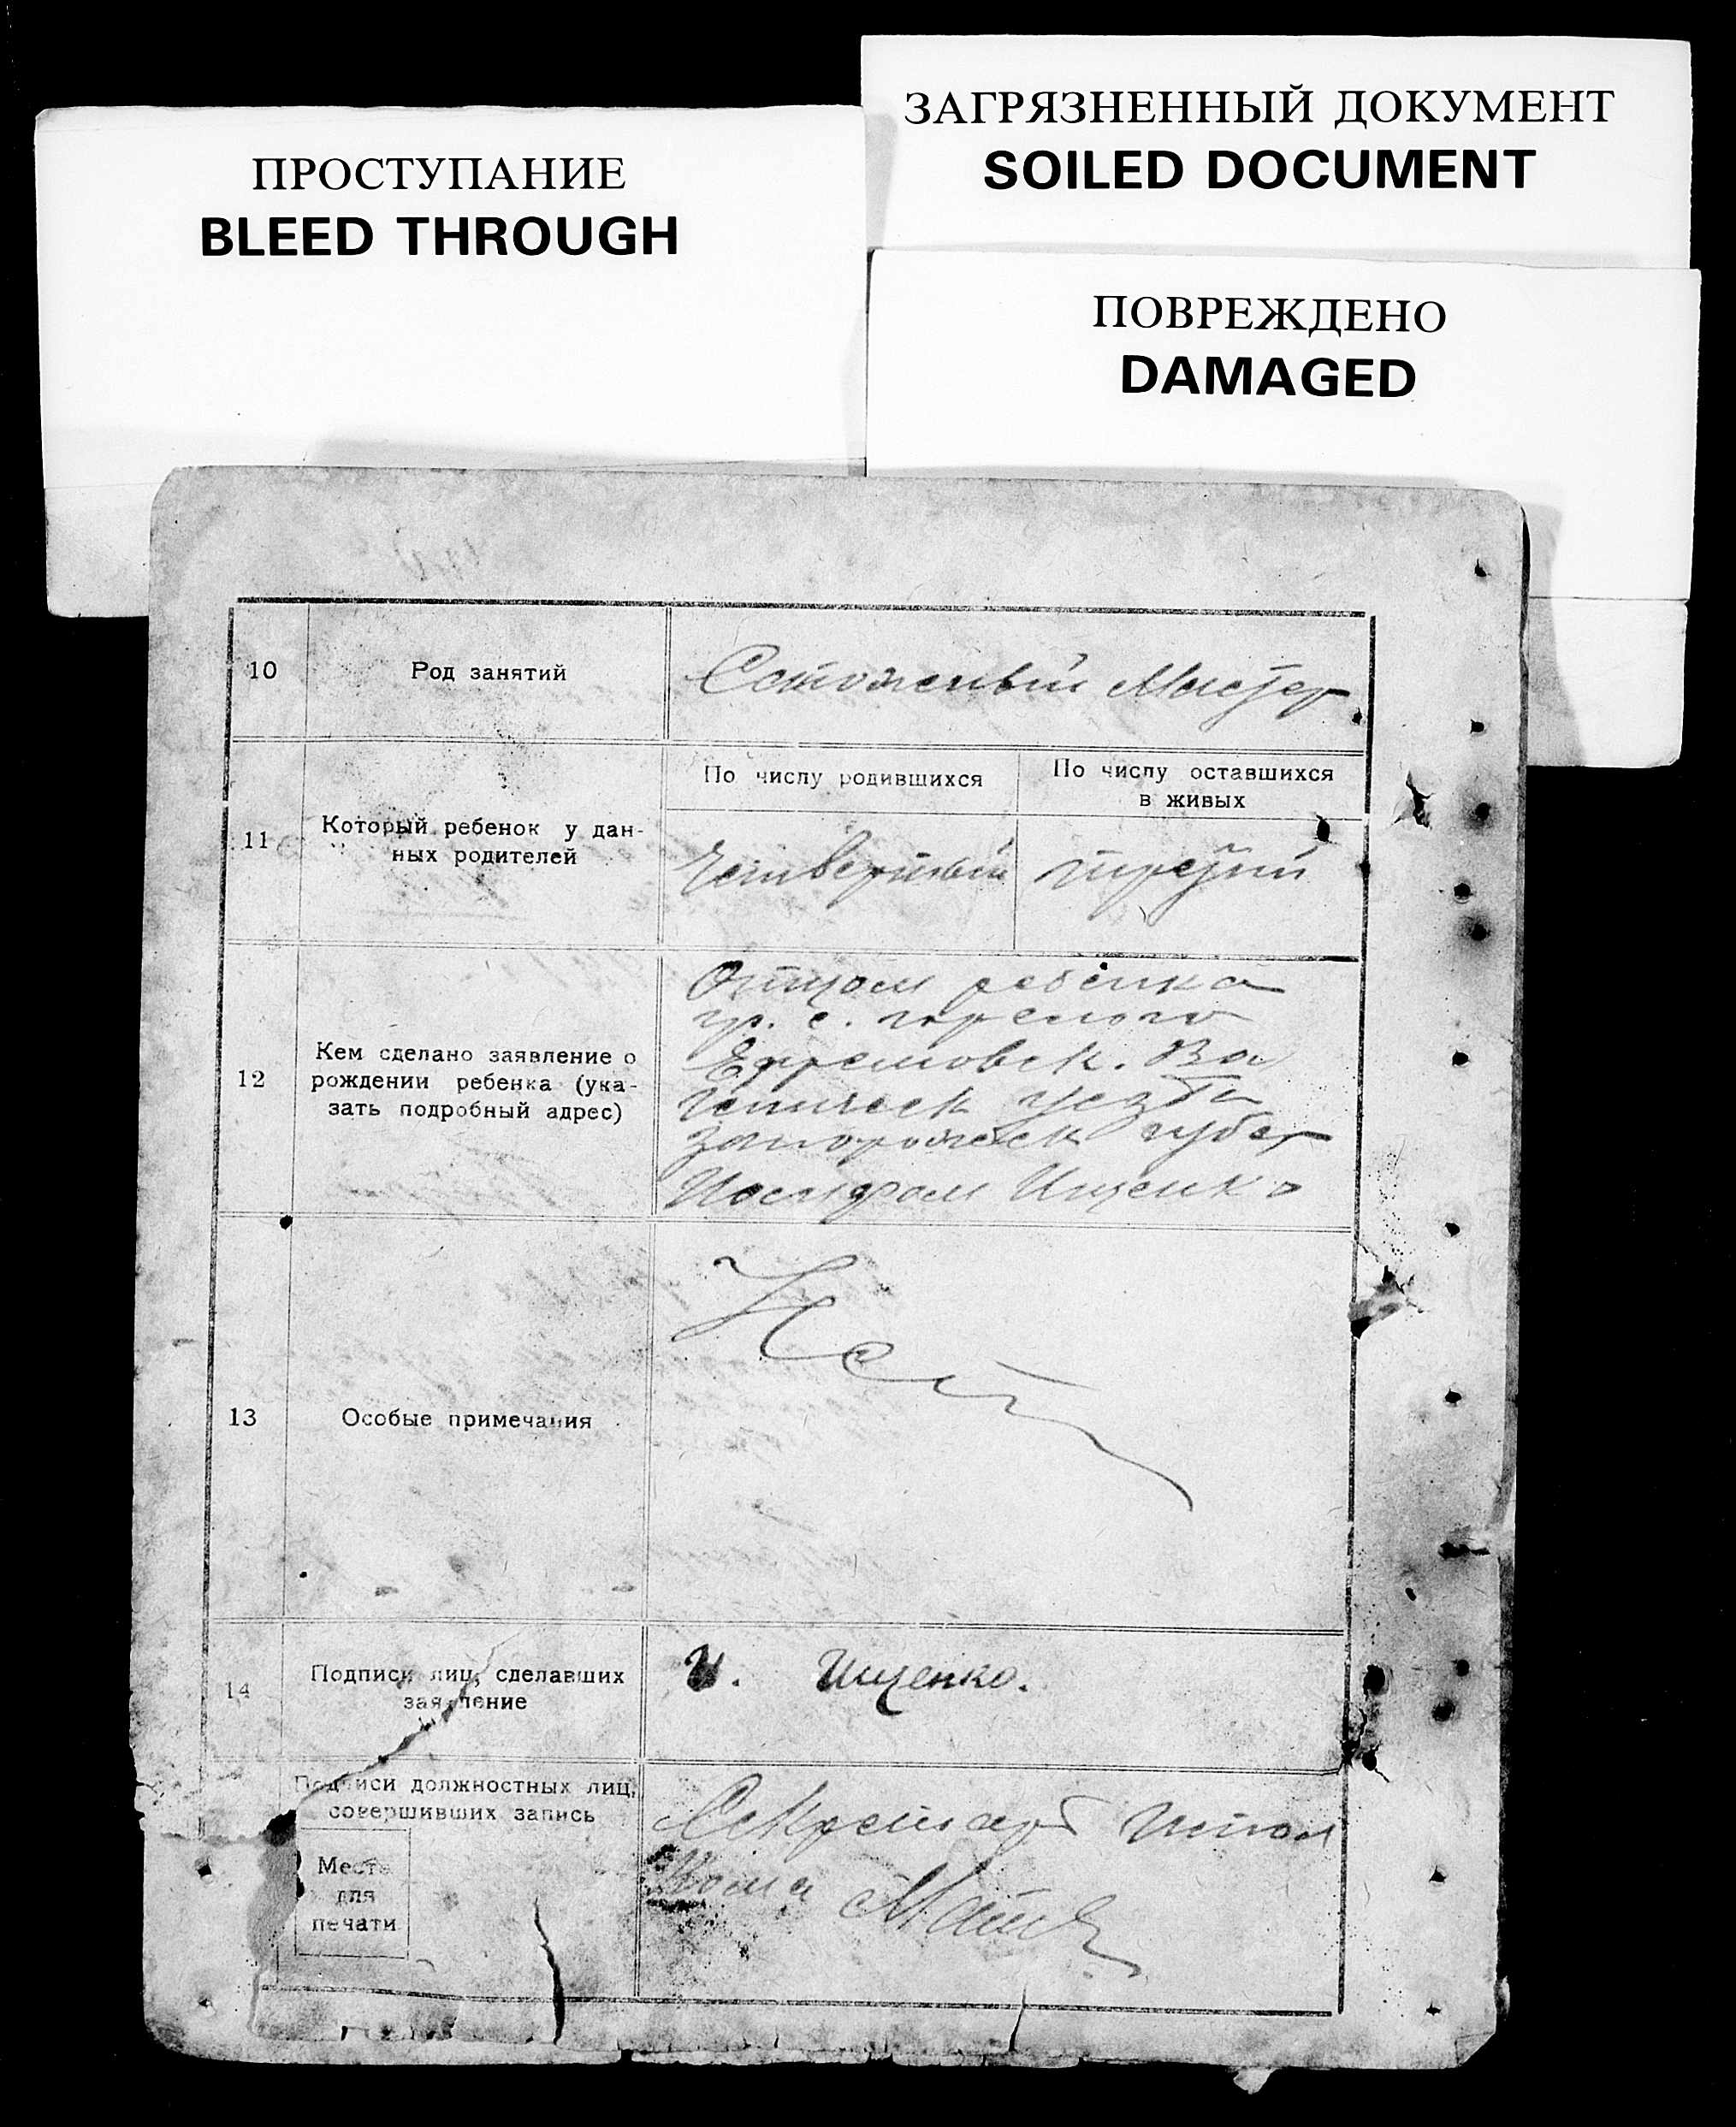 ЗАГРЯЗНЕННЫЙ ДОКУМЕНТ
SOILED DOCUMENT
ПРОСТУПАНИЕ
BLEED THROUGH
ПОВРЕЖДЕНО
DAMAGED
10
Род занятий
Сапожный Мастер
11
Который ребенок у дан-
ных родителей
По числу родившихся
По числу оставшихся
в живых
Четвертый
третий
12
Кем сделано заявление о
рождении ребенка (ука-
зать подробный адрес)
Отцом ребенка
гр. с.
Ефремовск. Во
Геническ уезда
Запорожск губер
Иосифом Ищенко
13
Особые примечания
Нет
14
Подписи лиц, сделавших
заявление
И. Ищенко.
Подписи должностных лиц,
совершивших запись
Место
для
печати
Секретарь Испол
кома